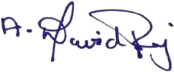 A. David Raj